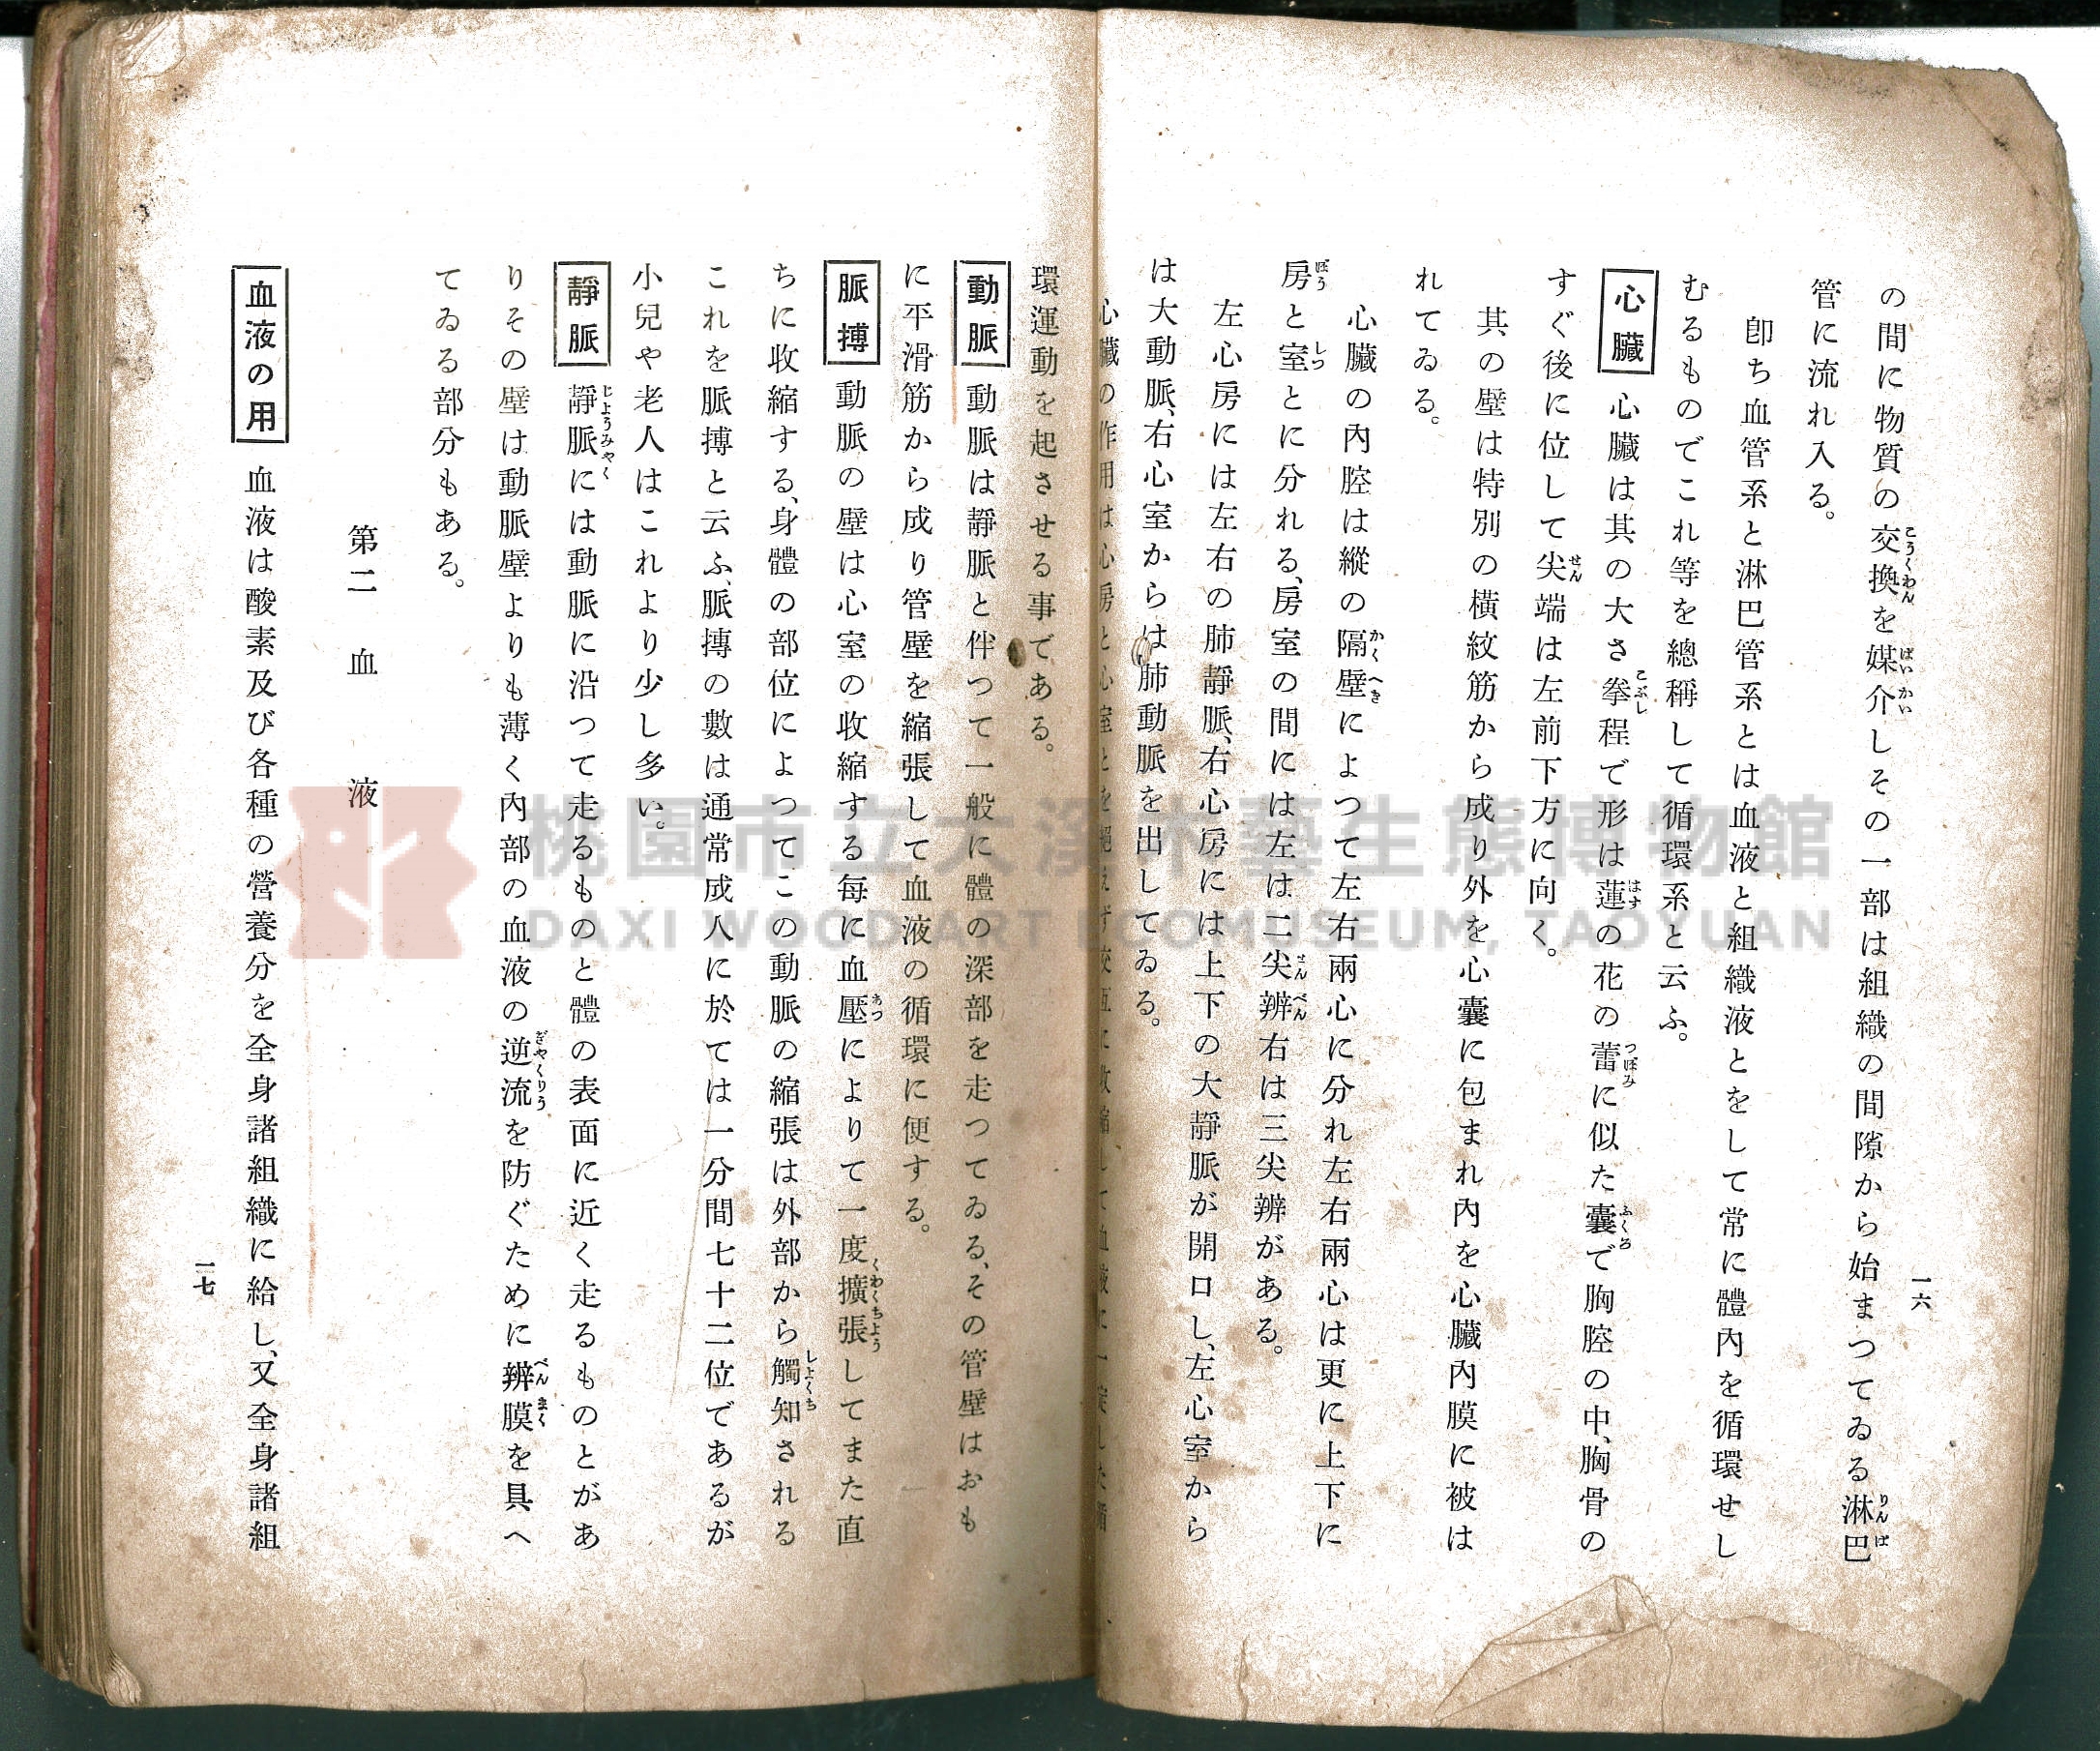 一六
の間に物質の交換を媒介しその一部は組織の間隙から始まつてゐる淋巴
管に流れ入る。
卽ち血管系と淋巴管系とは血液と組織液とをして常に體內を循環せし
むるものでこれ等を總稱して循環系と云ふ。
心臟 心臟は其の大さ拳程で形は蓮の花の蕾に似た囊で胸腔の中、胸骨の
すぐ後に位して尖端は左前下方に向く。
其の壁は特別の橫紋筋から成り外を心囊に包まれ內を心臟內膜に被は
れてゐる。
心臟の內腔は縱の隔壁によつて左右兩心に分れ左右兩心は更に上下に
房と室とに分れる、房室の間には左は二尖辨右は三尖辨がある。
左心房には左右の肺靜脈、右心房には上下の大靜脈が開口し、左心室から
は大動脈、右心室からは肺動脈を出してゐる。
心臟の作用は心房と心室とを絕えず交互に收縮して血液に一定した循
環運動を起させる事である。
動脈 動脈は靜脈と伴つて一般に體の深部を走つてゐる、その管壁はおも
に平滑筋から成り管壁を縮張して血液の循環に便する。
脈搏 動脈の壁は心室の收縮する每に血壓によりて一度擴張してまた直
ちに收縮する、身體の部位によつてこの動脈の縮張は外部から觸知される
これを脈搏と云ふ、脈搏の數は通常成人に於ては一分間七十二位であるが
小兒や老人はこれより少し多い。
靜脈 靜脈には動脈に沿つて走るものと體の表面に近く走るものとがあ
りその壁は動脈壁よりも薄く內部の血液の逆流を防ぐために辨膜を具へ
てゐる部分もある。
第二 血 液
血液の用 血液は酸素及び各種の營養分を全身諸組織に給し、又全身諸組
一七
桃園市立大溪木藝生態博物館
DAXI WOOD ART ECOMUSEUM, TAOYUAN